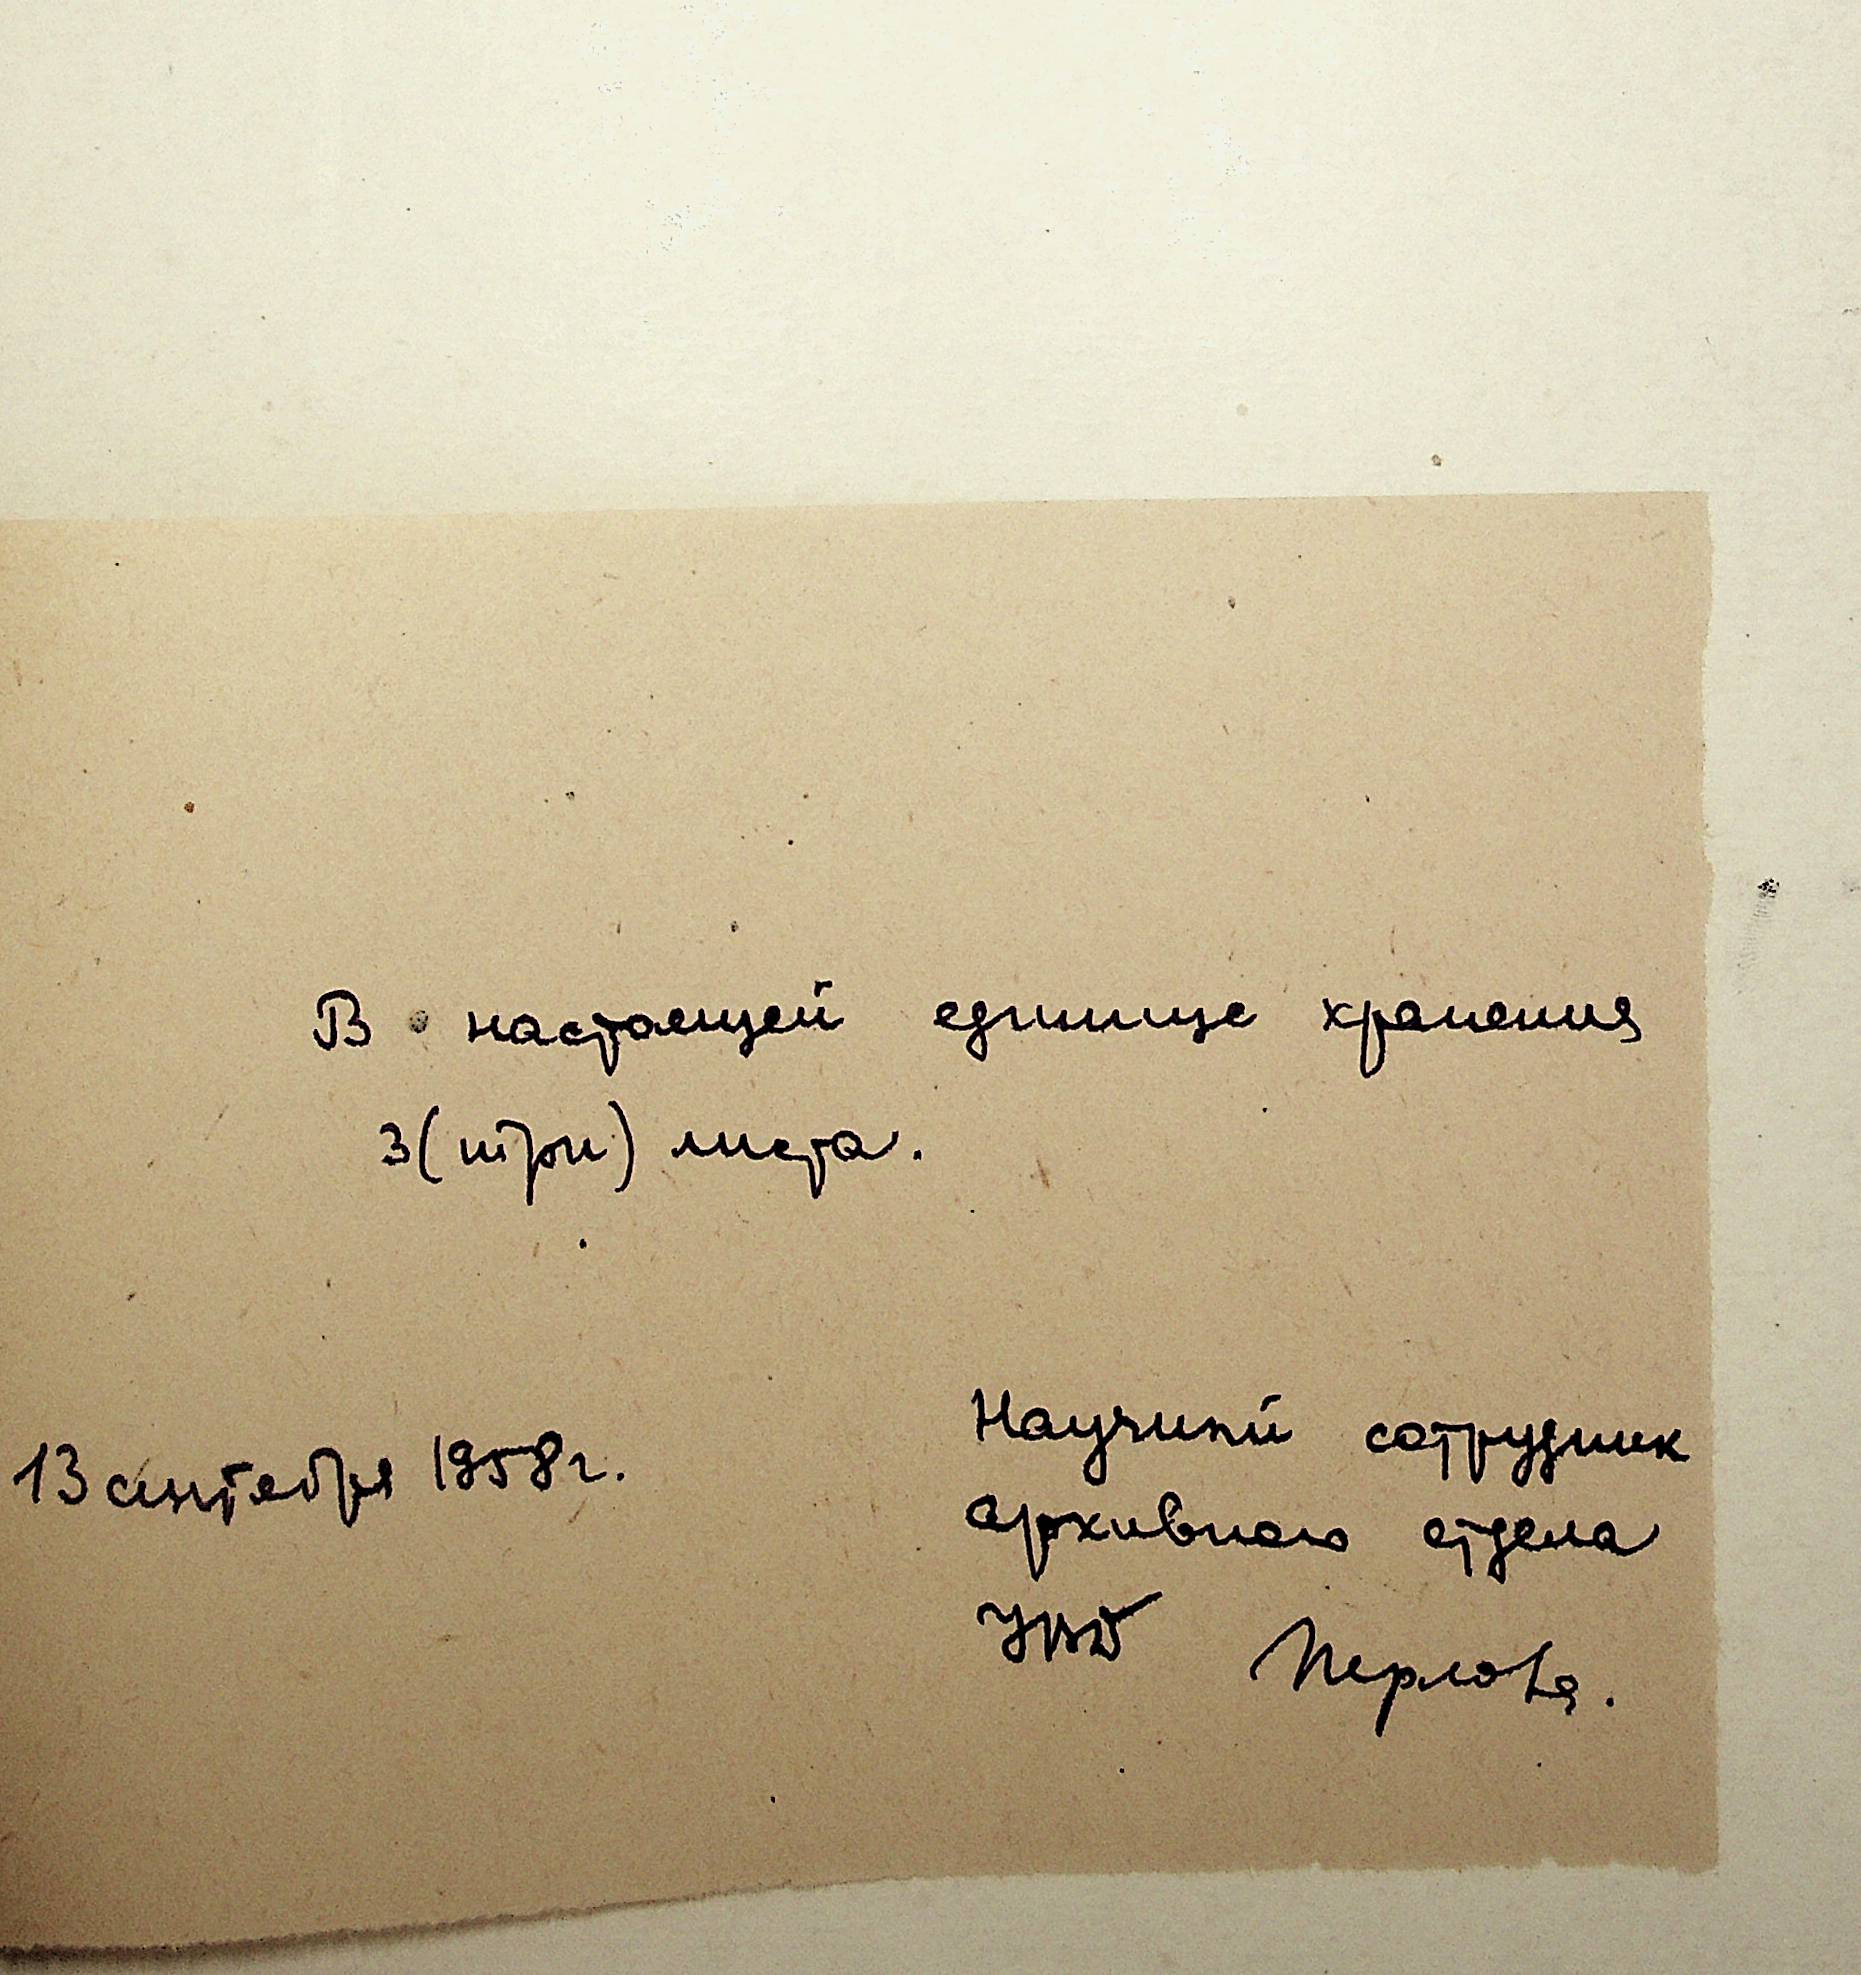 В настоящей единице хранения
3 (три) листа.
13 сентября 1958 г.
Научный сотрудник
архивного отдела
Перлова.